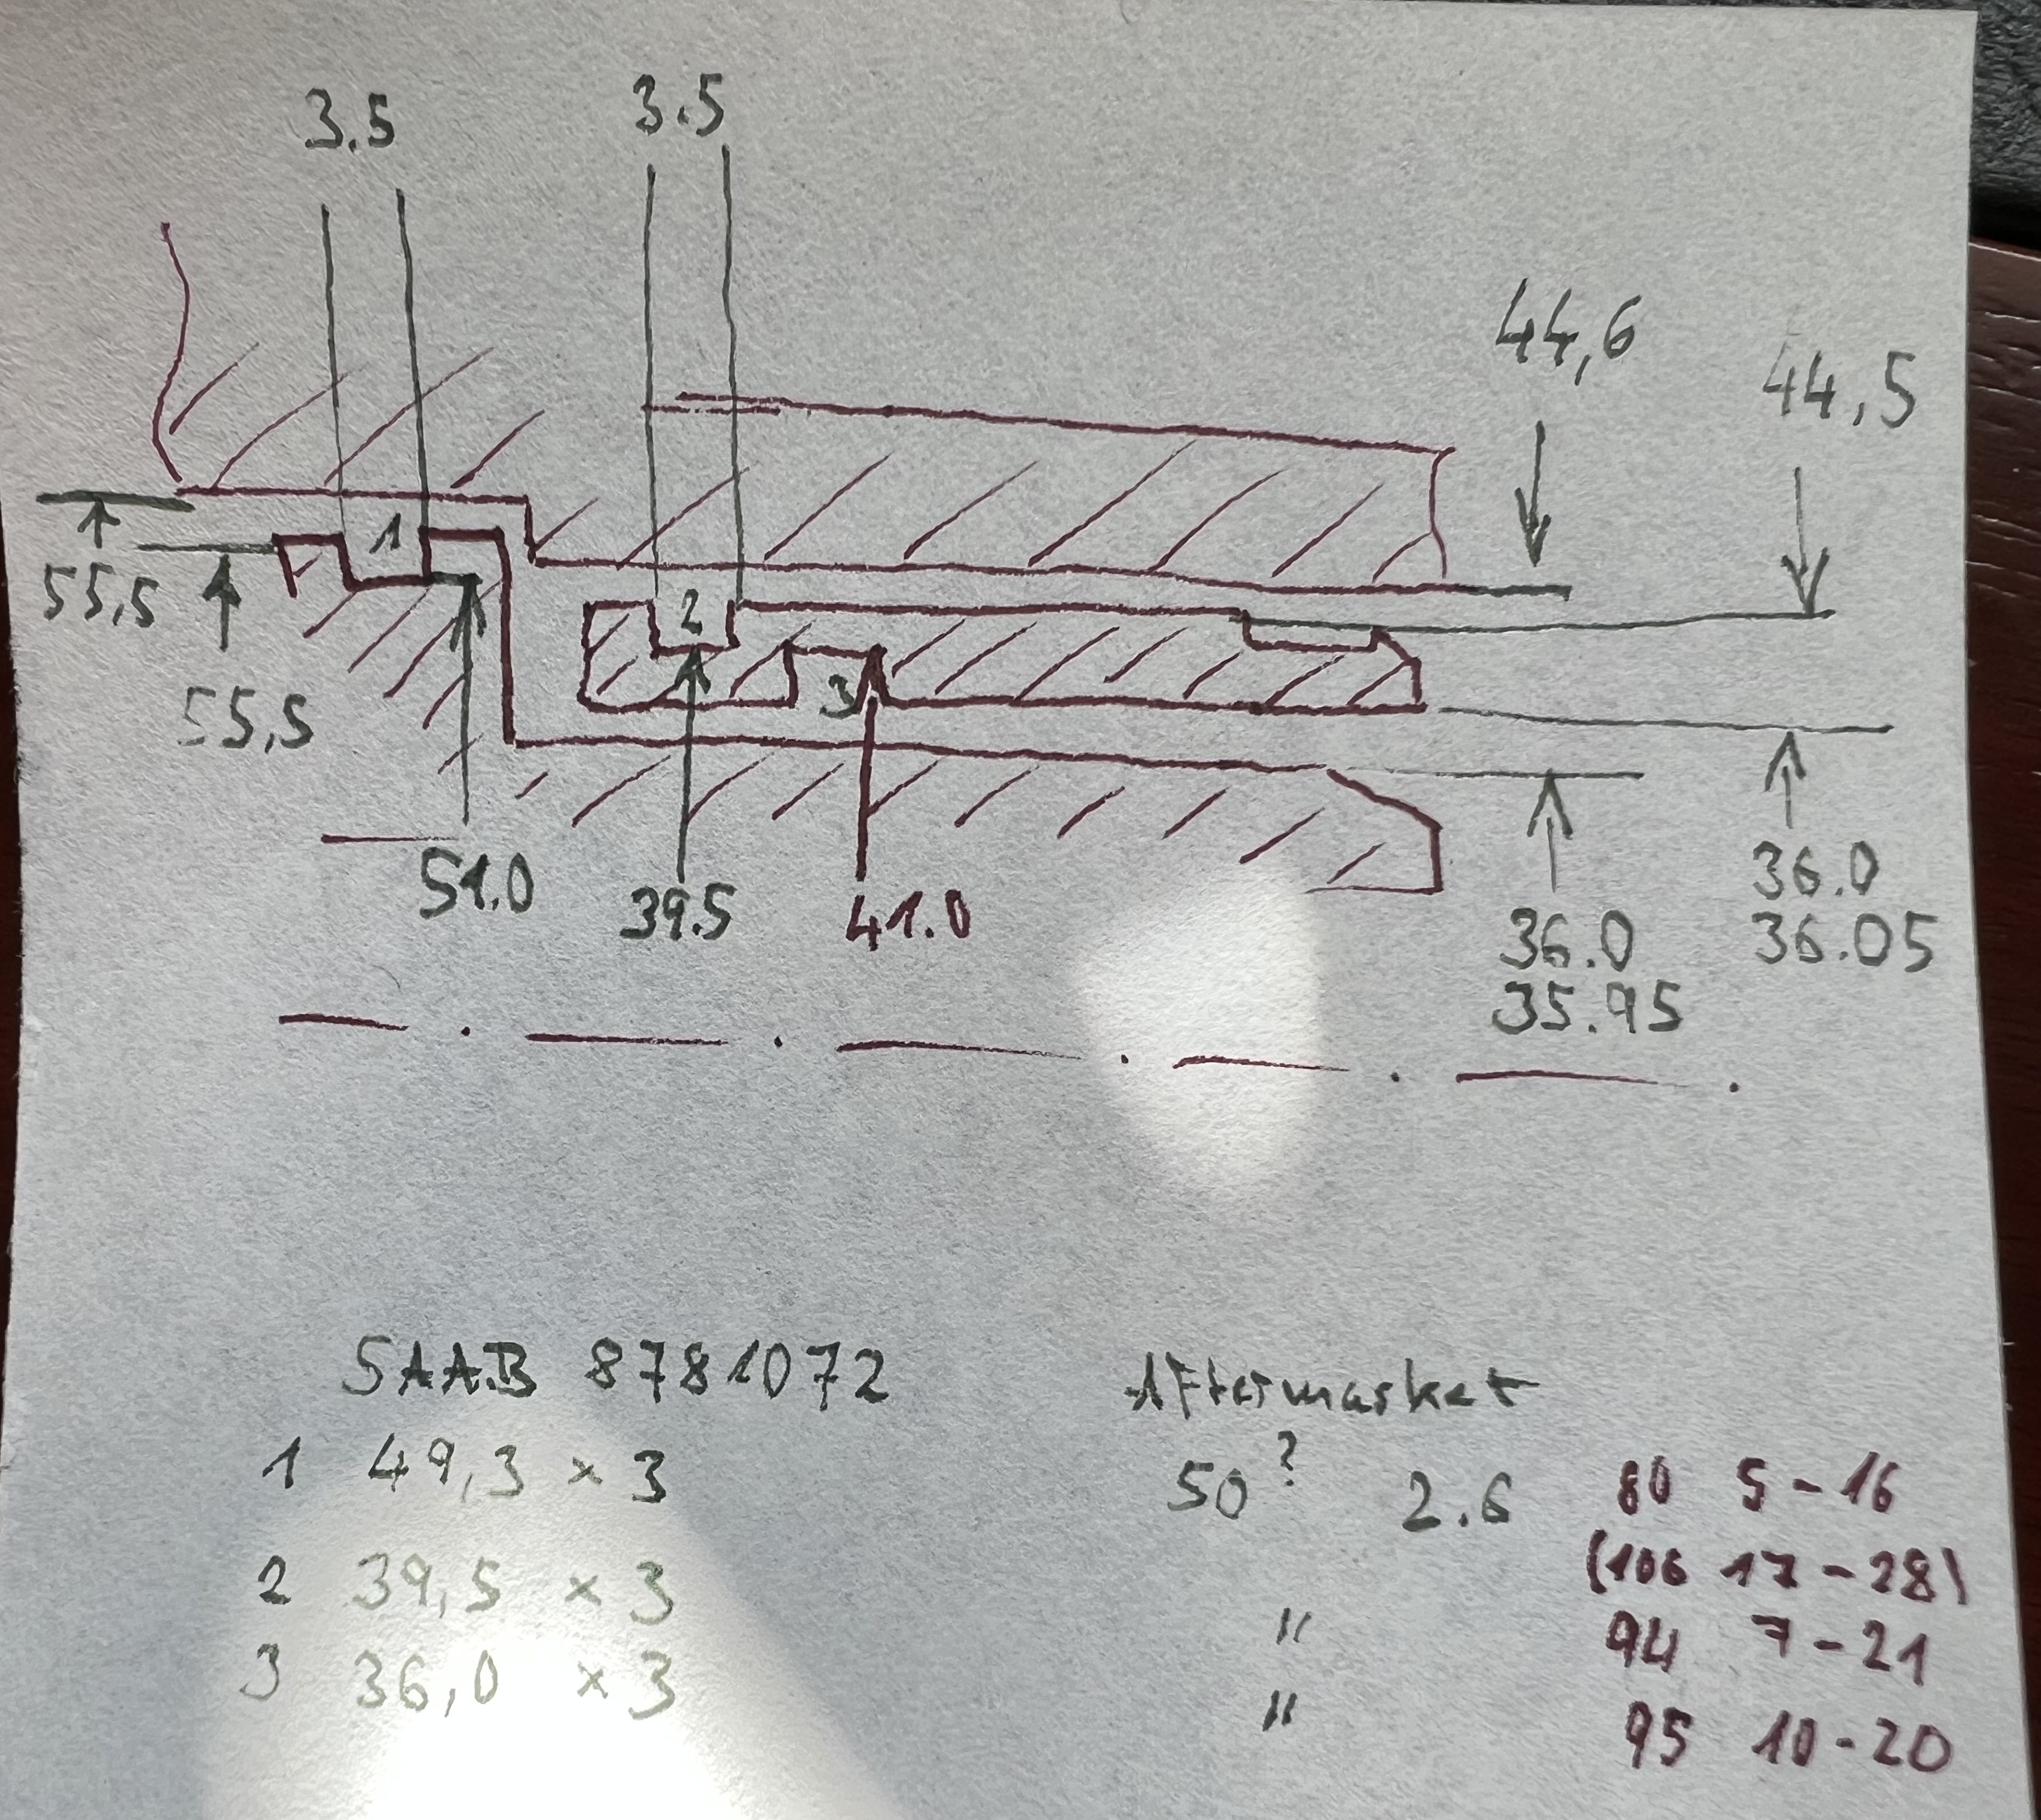 3.5 3.5
44,6
44,5
1
55,5
2
55,5
3
51.0
39.5
41.0
36.0
36.05
36.0
35.95
SAAB 8781072 Aftermarket
1 49,3 x 3 50? 2.6 80 5-16
(106 17-28)
2 39,5 x 3 " 94 7-21
3 36,0 x 3 " 95 10-20